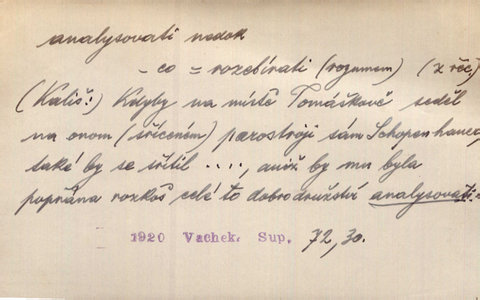 analysovati nedok
– co = rozebírati (rozumem) (z řeč.)
(Kališ:) Kdyby na místě Tomáškově seděl
na onom (šříceném) parostroji sám Schopenhauer,
také by se šřítil ...., aniž by mu byla
popřána rozkoš celé to dobrodružství analysovati.
1920 Vachek. Sup. 72,30.